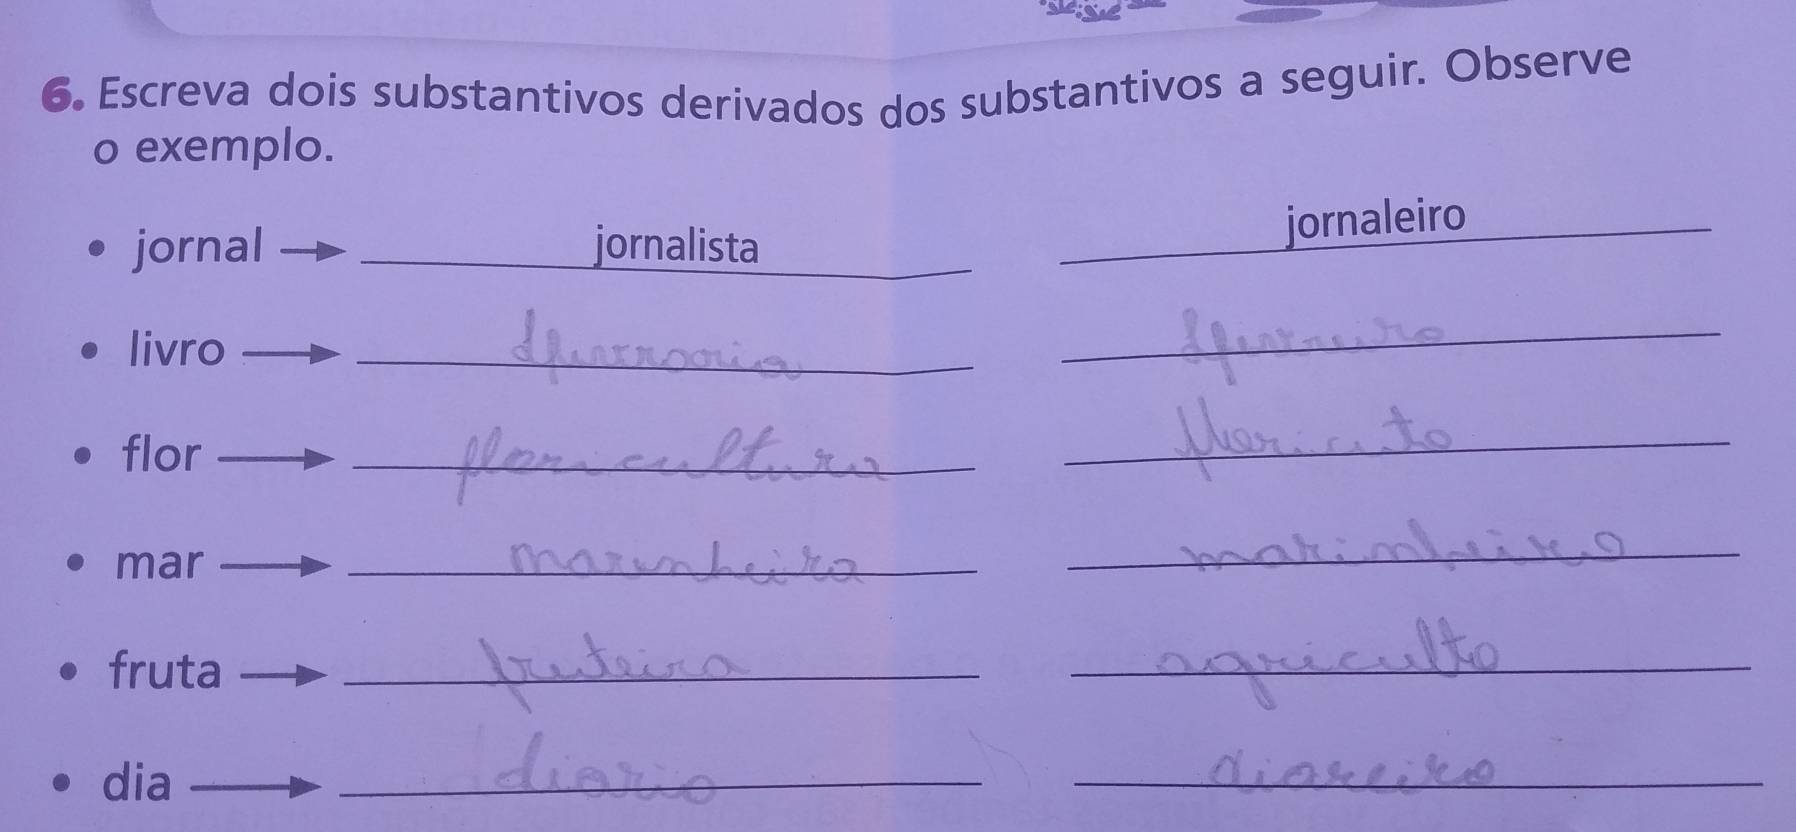 6. Escreva dois substantivos derivados dos substantivos a seguir. Observe
o exemplo.
• jornal → jornalista jornaleiro
• livro →
• flor → floricultura
• mar → marinheira marinheiro
• fruta → fruteira agriculto
• dia → diario diareiro